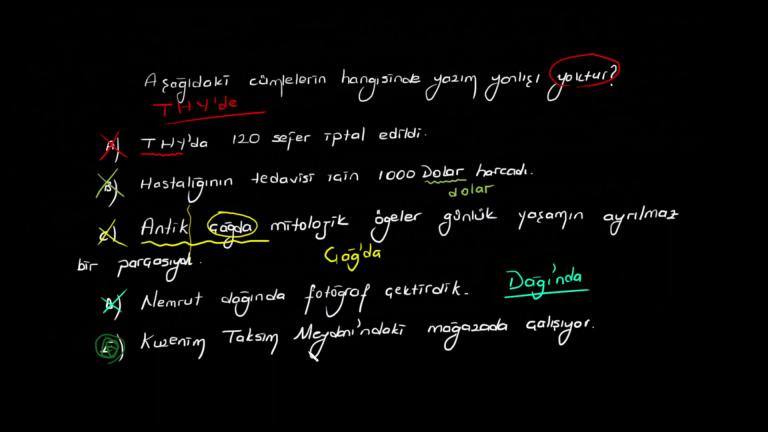 Aşağıdaki cümlelerin hangisinde yazım yanlışı yoktur?
THY'de
A) THY'da 120 sefer iptal edildi.
B) Hastalığının tedavisi için 1000 Dolar harcadı.
dolar
C) Antik çağda mitolojik ögeler günlük yaşamın ayrılmaz
Çağ'da
bir parçasıydı.
D) Nemrut dağında fotoğraf çektirdik.
Dağı'nda
E) Kuzenim Taksim Meydanı'ndaki mağazada çalışıyor.